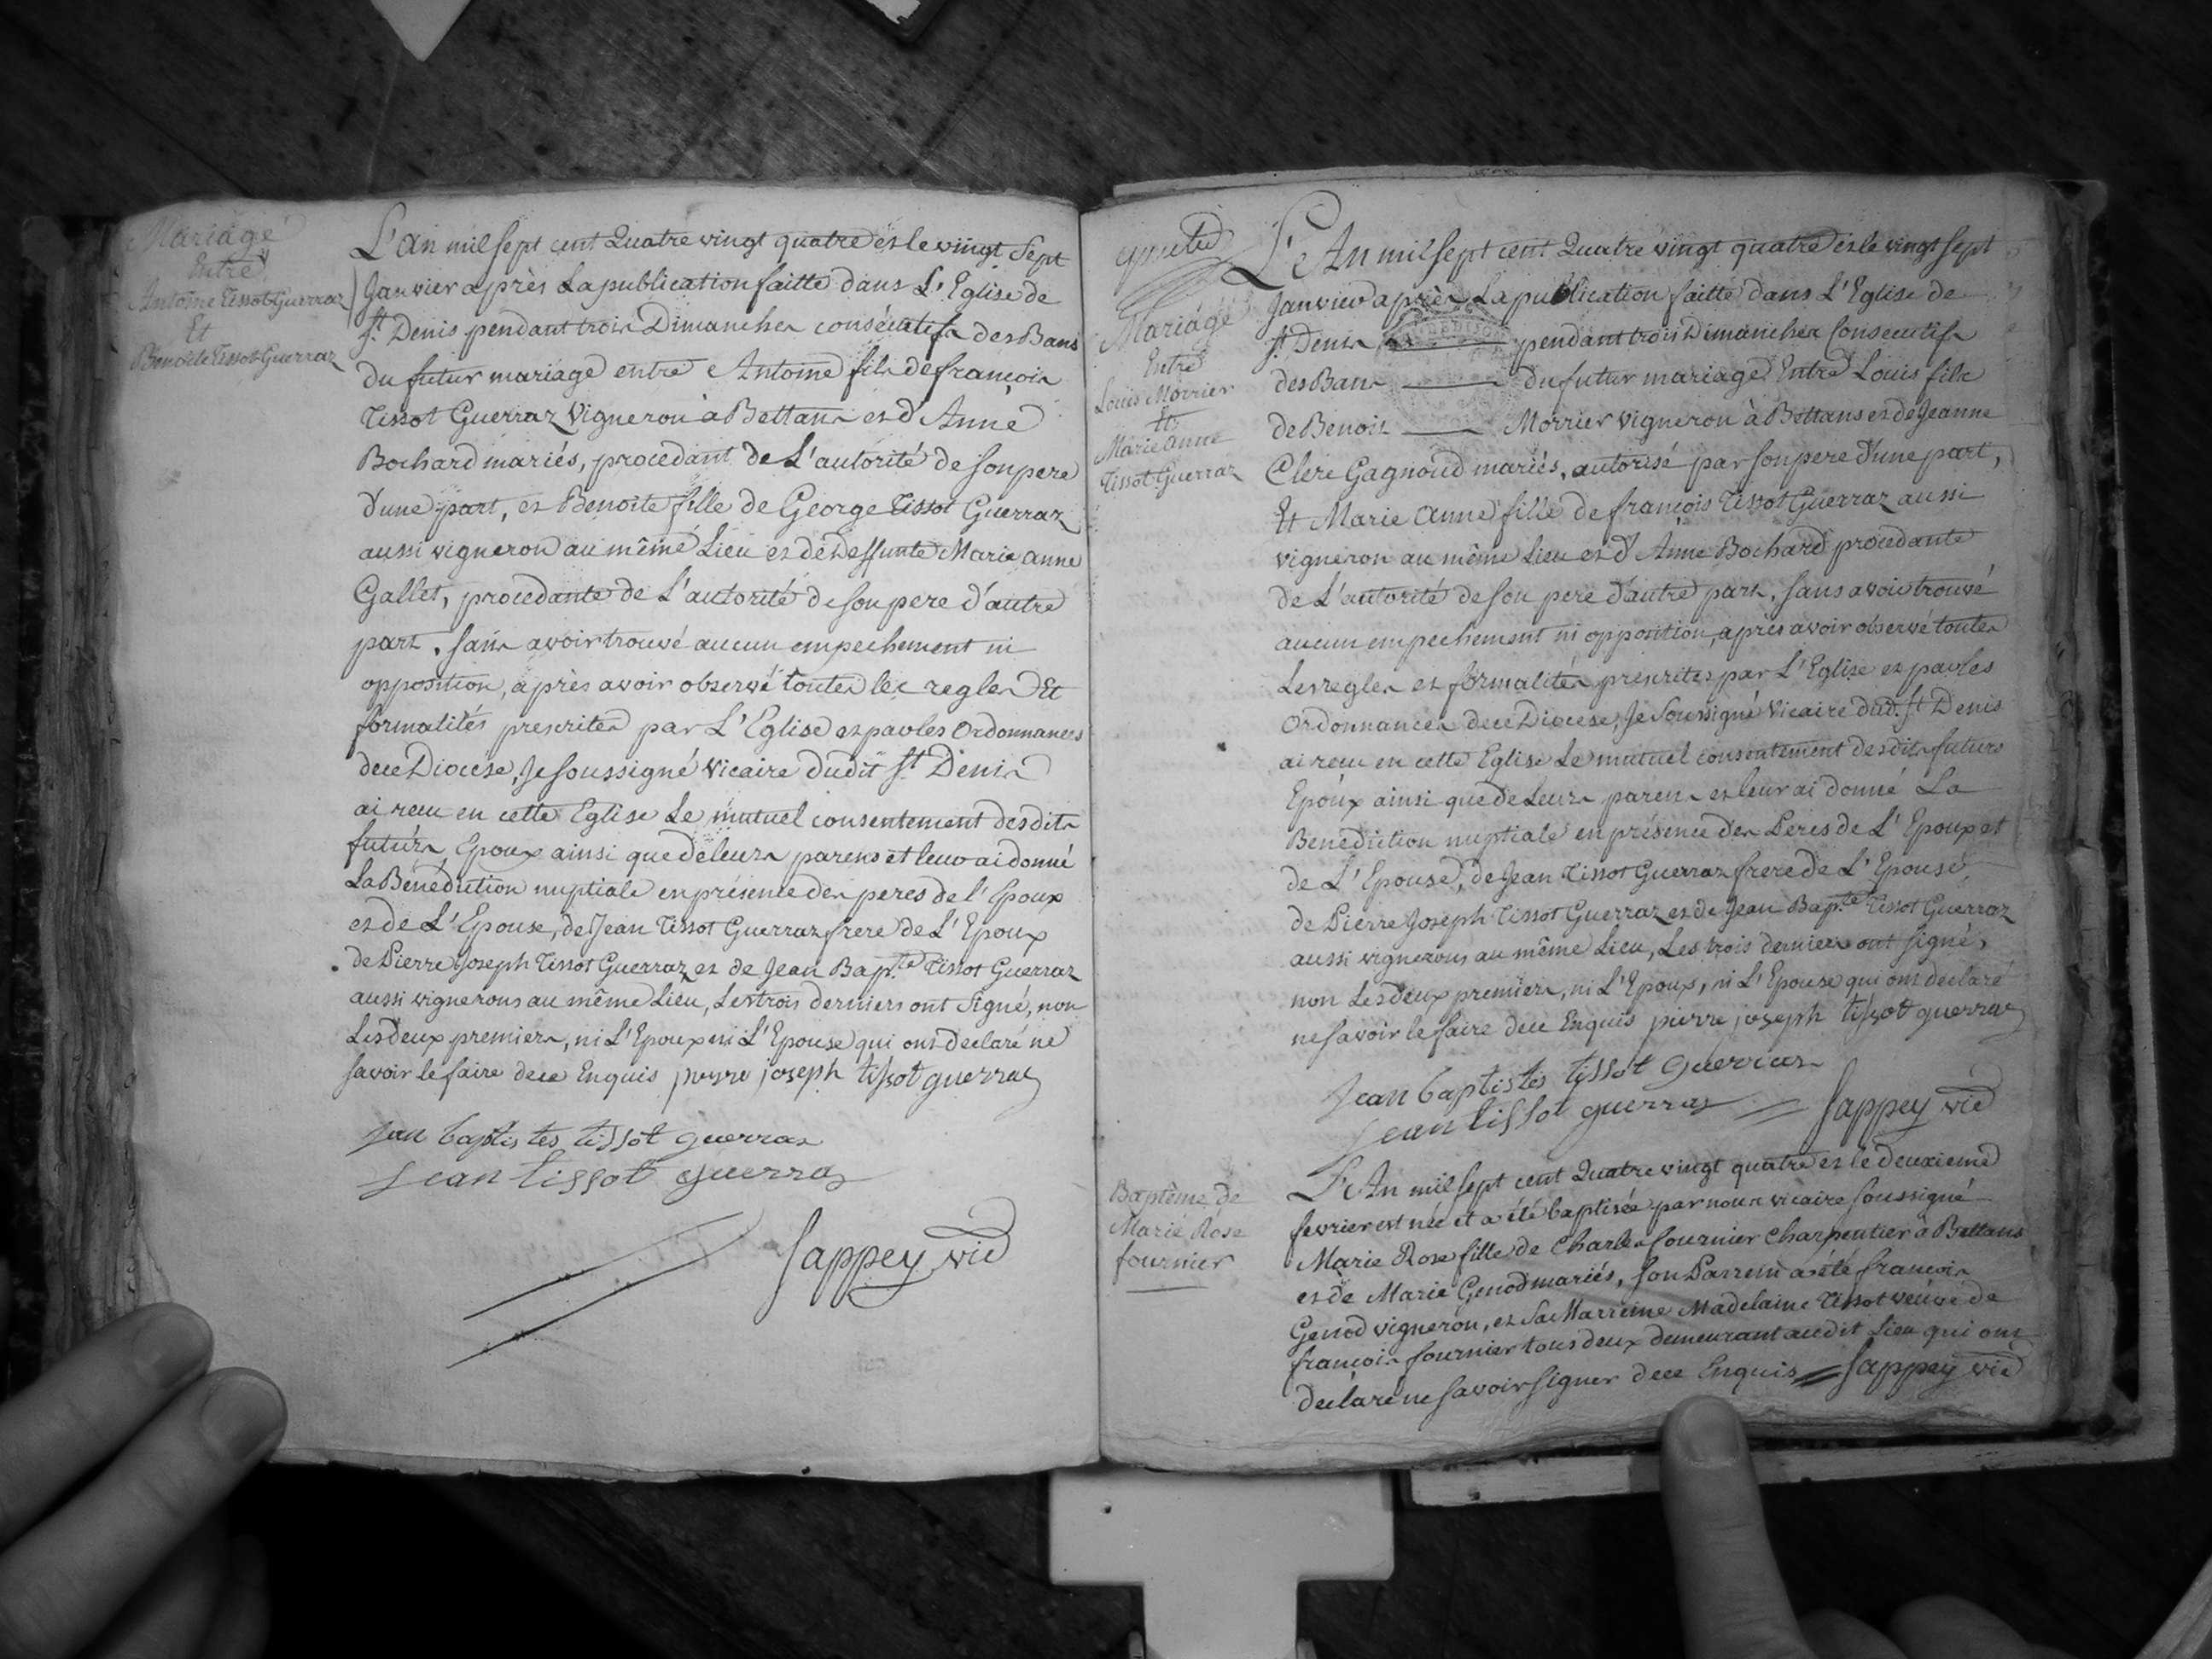 Mariage
Entre
Antoine Tissot Guerraz
Et
Benoite Tissot Guerraz
L'an mil sept cent Quatre vingt quatre et le vingt Sept
Janvier après La publication faitte dans L'Eglise de
St. Denis pendant trois Dimanches consécutifs des Bans
du futur mariage entre Antoine fils de françois
Tissot Guerraz Vigneron à Bettans et d'Anne
Bochard mariés, procedant de L'autorité de son pere
d'une part, et Benoite fille de George Tissot Guerraz
aussi vigneron au même Lieu et de deffunte Marie anne
Gallet, procedante de L'autorité de son pere d'autre
part. sans avoir trouvé aucun empechement ni
opposition, après avoir observé toutes les regles Et
formalités prescrites par L'Eglise et par les Ordonnances
de ce Diocèse, Je soussigné Vicaire dudit St Denis
ai recu en cette Eglise Le mutuel consentement desdits
futurs Epoux ainsi que de leurs parens et leur ai donné
La Bénédiction nuptiale en présence des peres de l'Epoux
et de L'Epouse, de Jean Tissot Guerraz frere de L'Epoux
de Pierre Joseph Tissot Guerraz et de Jean Bapte. Tissot Guerraz
aussi vignerons au même Lieu, Les trois derniers ont Signé, non
Les deux premiers, ni L'Epoux ni L'Epouse qui ont declaré ne
savoir le faire de ce Enquis pierre joseph tissot guerraz
jean baptistes tissot guerraz
jean tissot guerraz
Sappey vic
Mariage
Entre
Louis Morrier
Et
Marie Anne
Tissot Guerraz
L'An mil sept cent Quatre vingt quatre et le vingt sept
Janvier après La publication faitte dans L'Eglise de
St Denis pendant trois Dimanches Consecutifs
des Bans du futur mariage Entre Louis fils
de Benoit Morrier Vigneron à Bettans et de Jeanne
Clere Gagnoud mariés, autorisé par son pere d'une part,
Et Marie Anne fille de françois Tissot Guerraz aussi
vigneron au même Lieu et d'Anne Bochard procedante
de L'autorité de son pere d'autre part. sans avoir trouvé
aucun empechement ni opposition, après avoir observé toutes
Les regles et formalités prescrites par L'Eglise et par les
Ordonnances de ce Diocese, Je Soussigné Vicaire dud. St Denis
ai recu en cette Eglise Le mutuel consentement desdits futurs
Epoux ainsi que de Leurs parens et leur ai donné La
Benediction nuptiale en présence des Peres de L'Epoux et
de L'Epouse, de Jean Tissot Guerraz frere de L'Epouse,
de Pierre Joseph Tissot Guerraz et de Jean Bapte. Tissot Guerraz
aussi vignerons au même Lieu, Les trois derniers ont signé,
non Les deux premiers, ni L'Epoux, ni L'Epouse qui ont declaré
ne savoir le faire de ce Enquis pierre joseph tissot guerraz
Jean baptistes tissot guerraz
jean tissot guerraz Sappey vic
Baptême de
Marie Rose
fournier
L'An mil sept cent Quatre vingt quatre et le deuxieme
fevrier est née et a été baptisée par nous vicaire soussigné
Marie Rose fille de Charles fournier Charpentier à Bettans
et de Marie Genod mariés, son Parrein a été françois
Genod vigneron, et Sa Marreine Madelaine Tissot veuve de
françois fournier tous deux demeurant audit Lieu qui ont
declaré ne savoir signer de ce Enquis Sappey vic